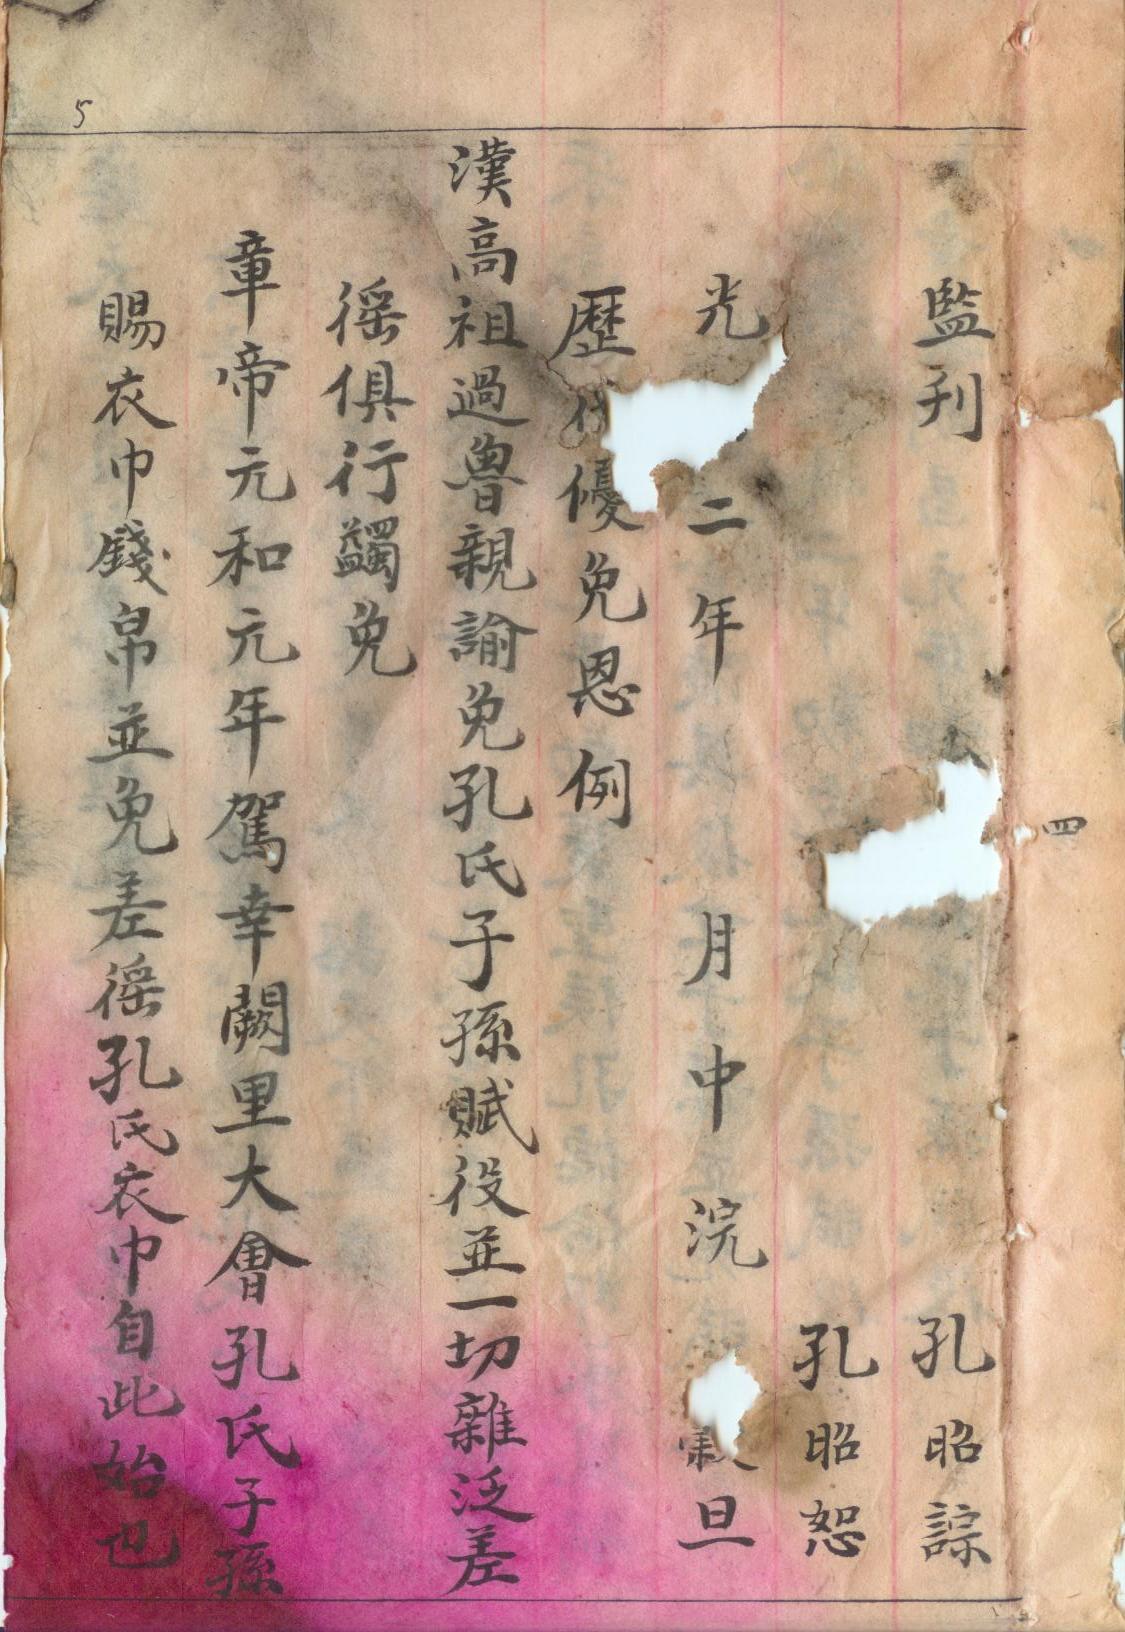 四
監刊 孔昭誴
孔昭恕
光 二年 月中浣 穀旦
歷代優免恩例
漢高祖過魯親諭免孔氏子孫賦役並一切雜泛差
徭俱行蠲免
章帝元和元年駕幸闕里大會孔氏子孫
賜衣巾錢帛並免差徭孔氏衣巾自此始也
5